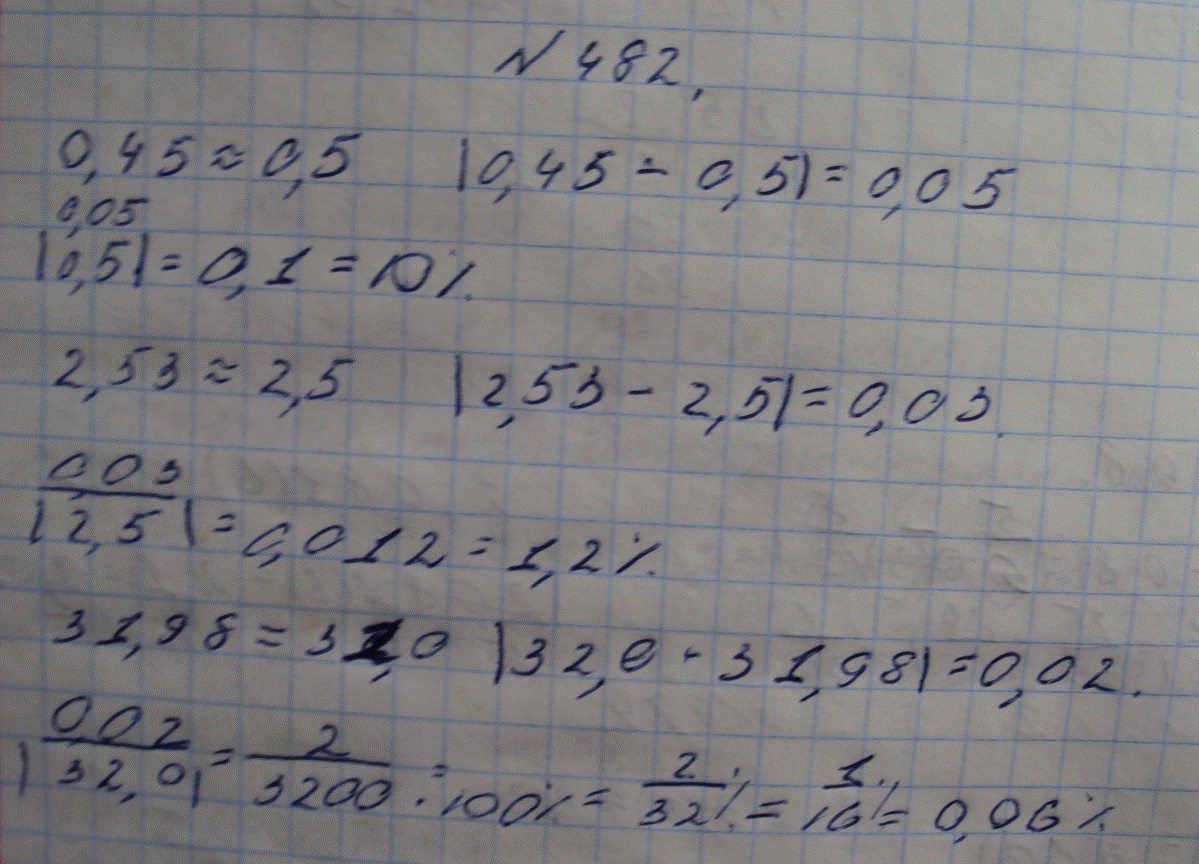 N 482,
0,45 ≈ 0,5 |0,45 - 0,5| = 0,05
0,05
|0,5| = 0,1 = 10%.
2,53 ≈ 2,5 |2,53 - 2,5| = 0,03.
0,03
|2,5| = 0,012 = 1,2%.
31,98 = 32,0 |32,0 - 31,98| = 0,02.
0,02 2 2 1
|32,0| = 3200 · 100% = 32% = 16% = 0,06%